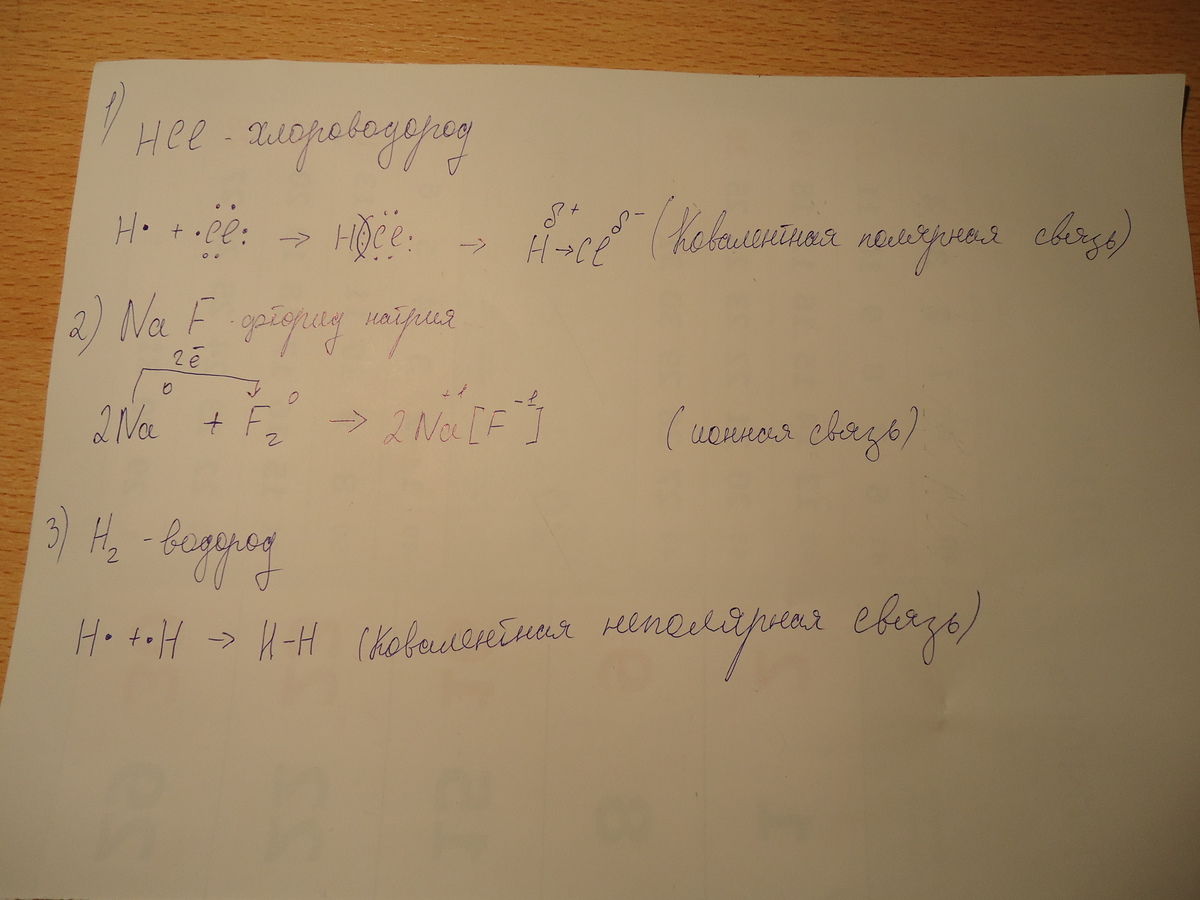 1) HCl - хлороводород
H· + ·C̈l̤: → H(:)C̈l̤: → H^δ+→Cl^δ- (Ковалентная полярная связь)
2) NaF - фторид натрия
2ē
2Na⁰ + F₂⁰ → 2Na⁺¹[F⁻¹] (ионная связь)
3) H₂ - водород
H· + ·H → H-H (Ковалентная неполярная связь)